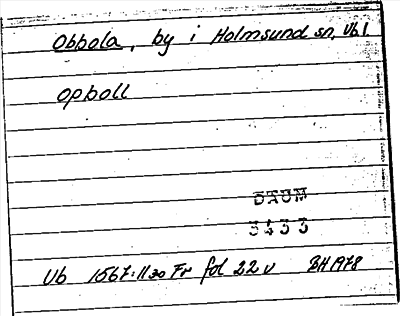 Obbola, by i Holmsund sn, Vb l
opboll
DAUM
3433
Vb 1567:11 30 Fr fol 22 v BH 1978